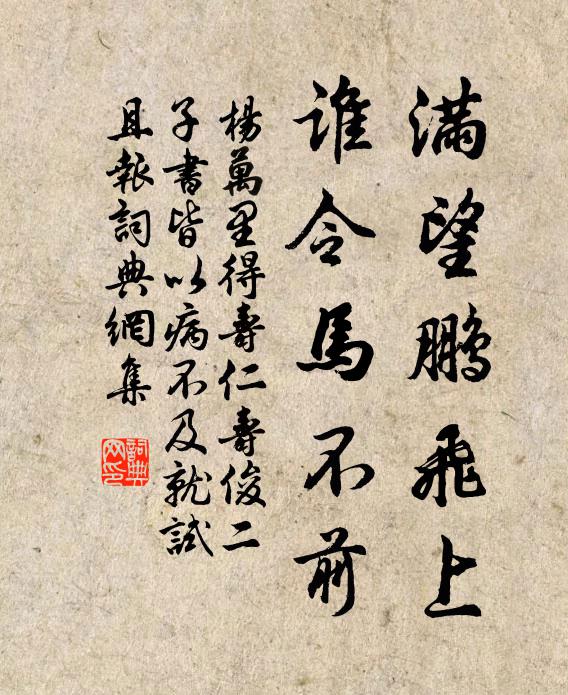 滿望鵬飛上
誰令馬不前
楊萬里得壽仁壽俊二
子書皆以病不及就試
且報詞典網集
詞典
网印